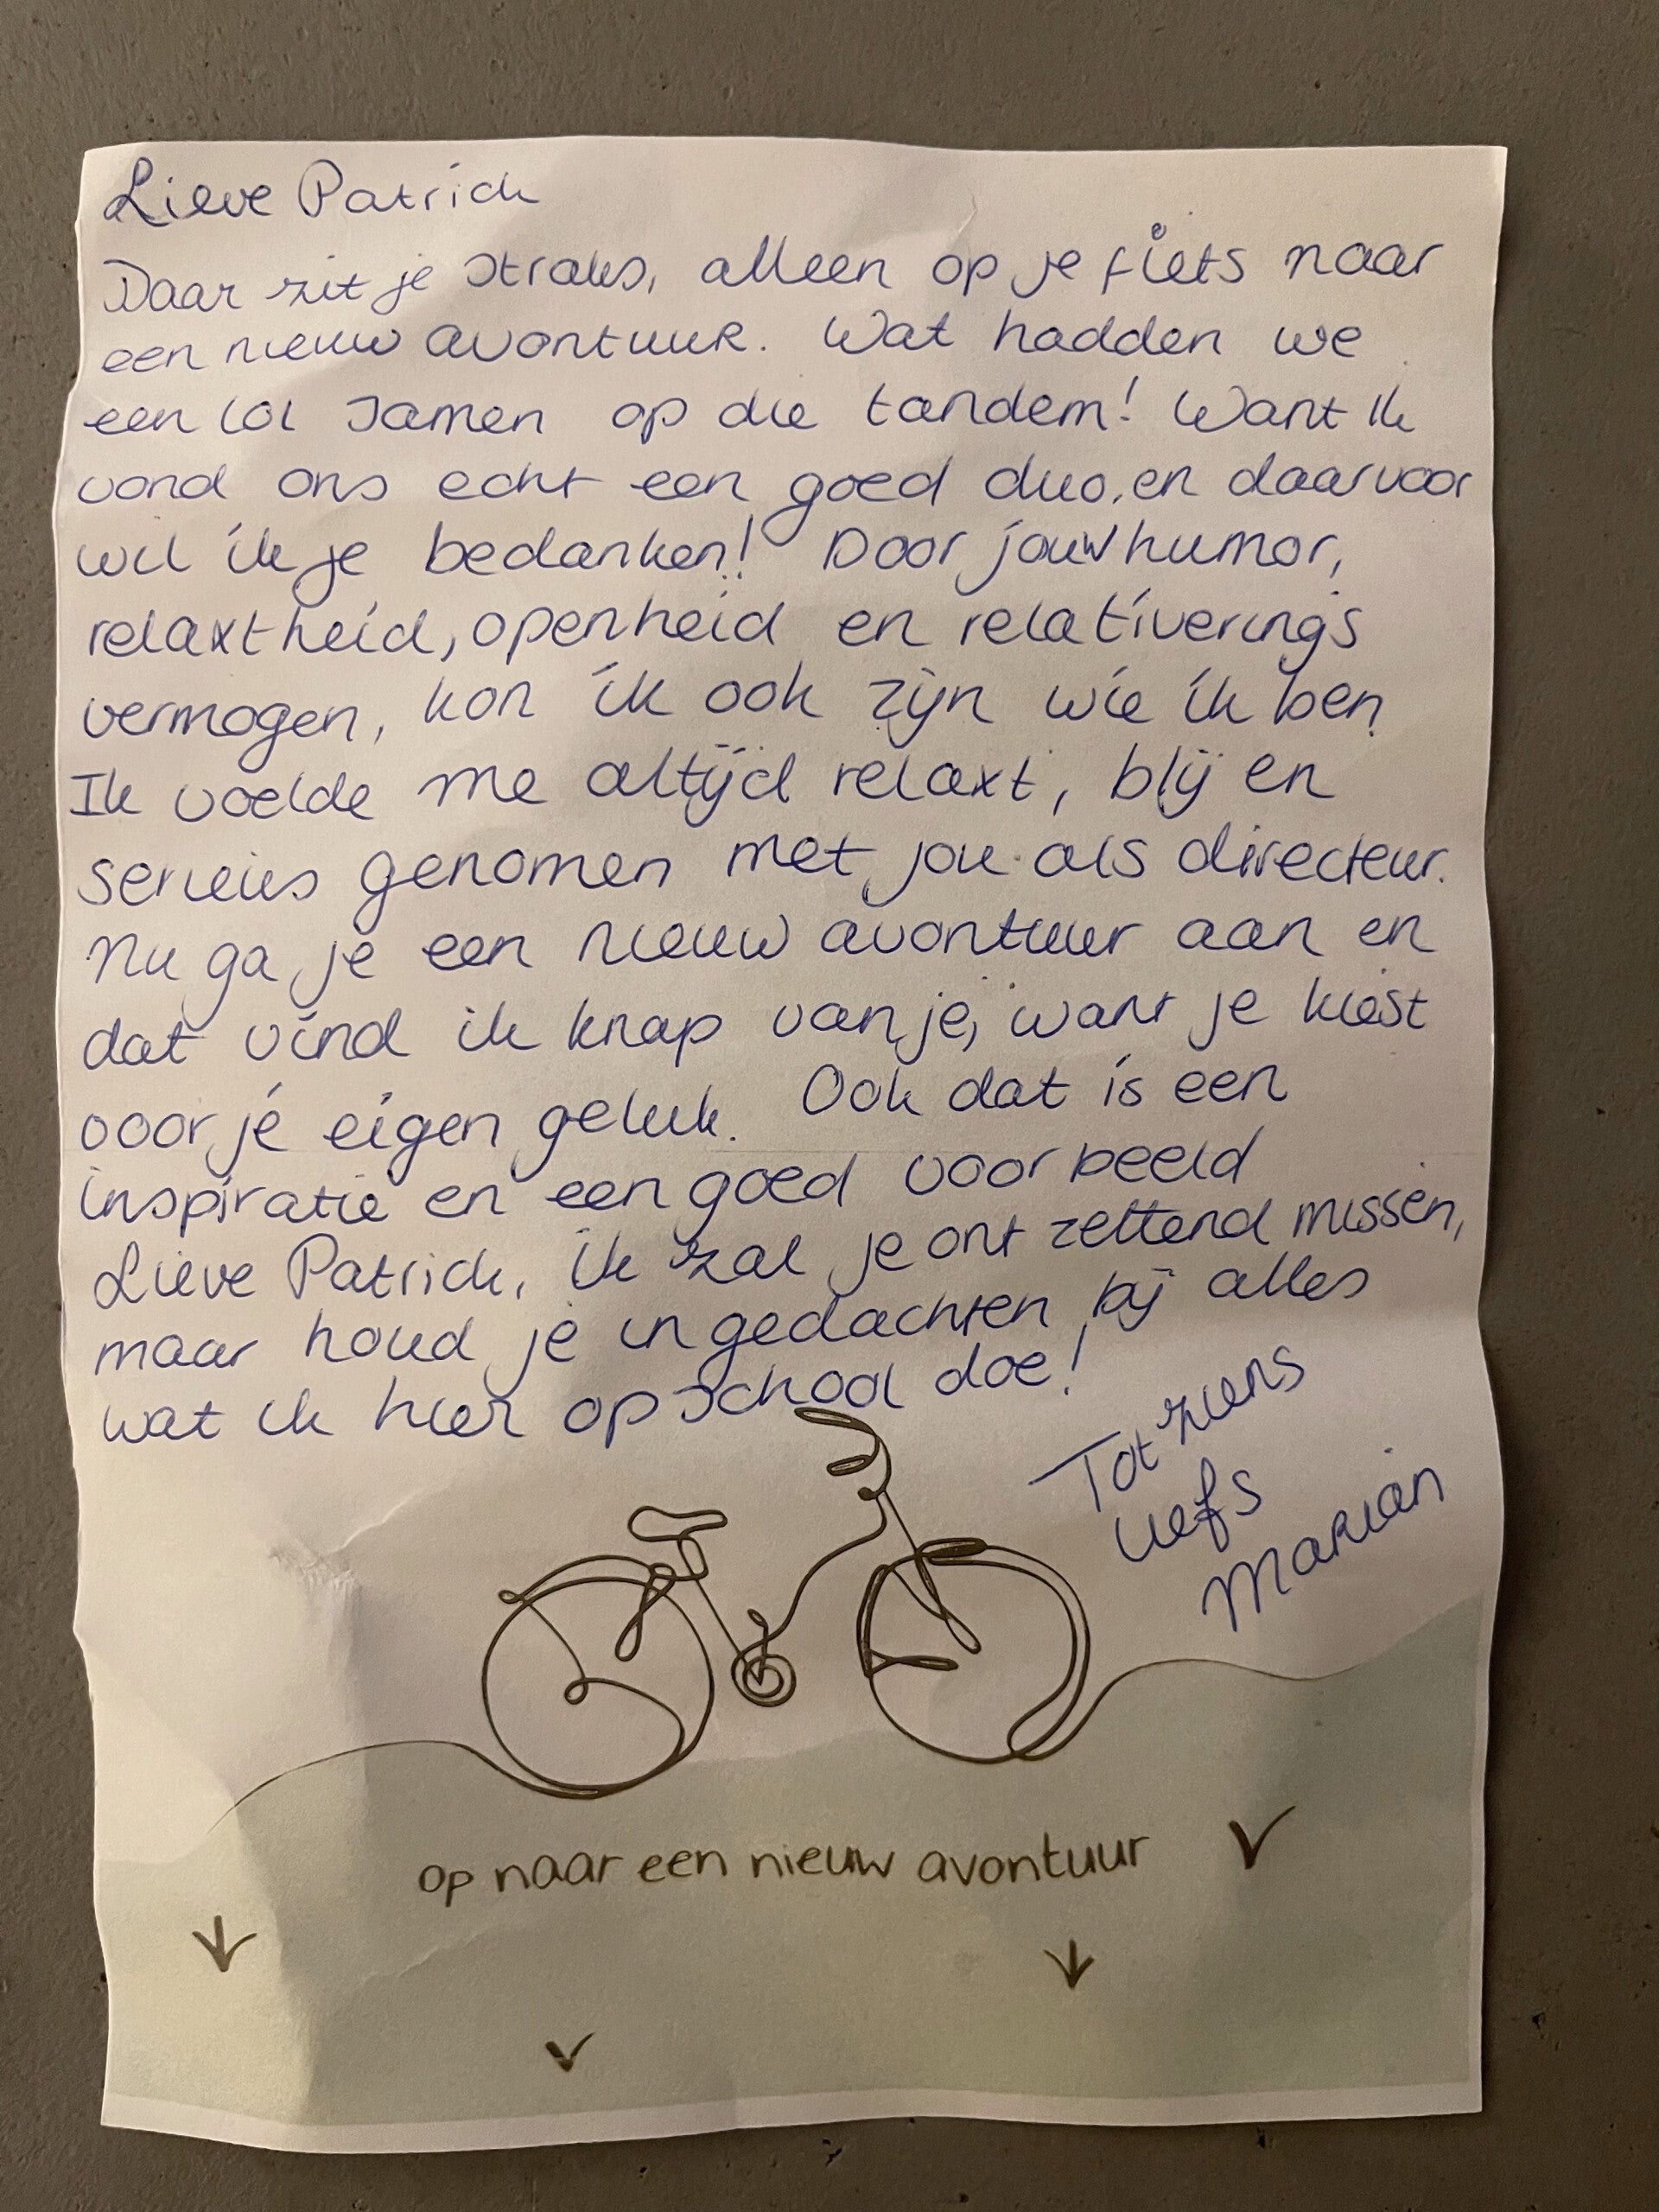 Lieve Patrick
Daar zit je straks, alleen op je fiets naar
een nieuw avontuur. Wat hadden we
een lol samen op die tandem! Want ik
vond ons echt een goed duo, en daarvoor
wil ik je bedanken! Door jouw humor,
relaxtheid, openheid en relativerings
vermogen, kon ik ook zijn wie ik ben
Ik voelde me altijd relaxt, blij en
serieus genomen met jou als directeur.
Nu ga je een nieuw avontuur aan en
dat vind ik knap van je, want je kiest
voor je eigen geluk. Ook dat is een
inspiratie en een goed voorbeeld
Lieve Patrick, ik zal je ontzettend missen,
maar houd je in gedachten bij alles
wat ik hier op school doe!
Tot ziens
liefs
Marian
op naar een nieuw avontuur